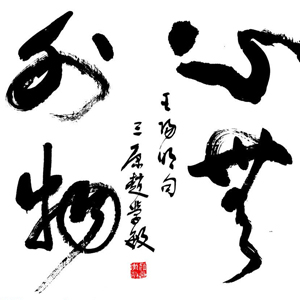 心外
無物
王陽明句
三原趙學敏